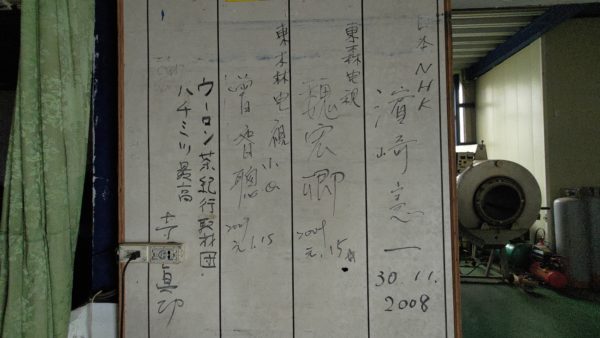 日本NHK
濵崎憲一
30.11.
2008
東森電視
魏宏卿
2009
元.15
東森電視小如
2009
元.15
ウーロン茶紀行取材団
ハチミツ最高